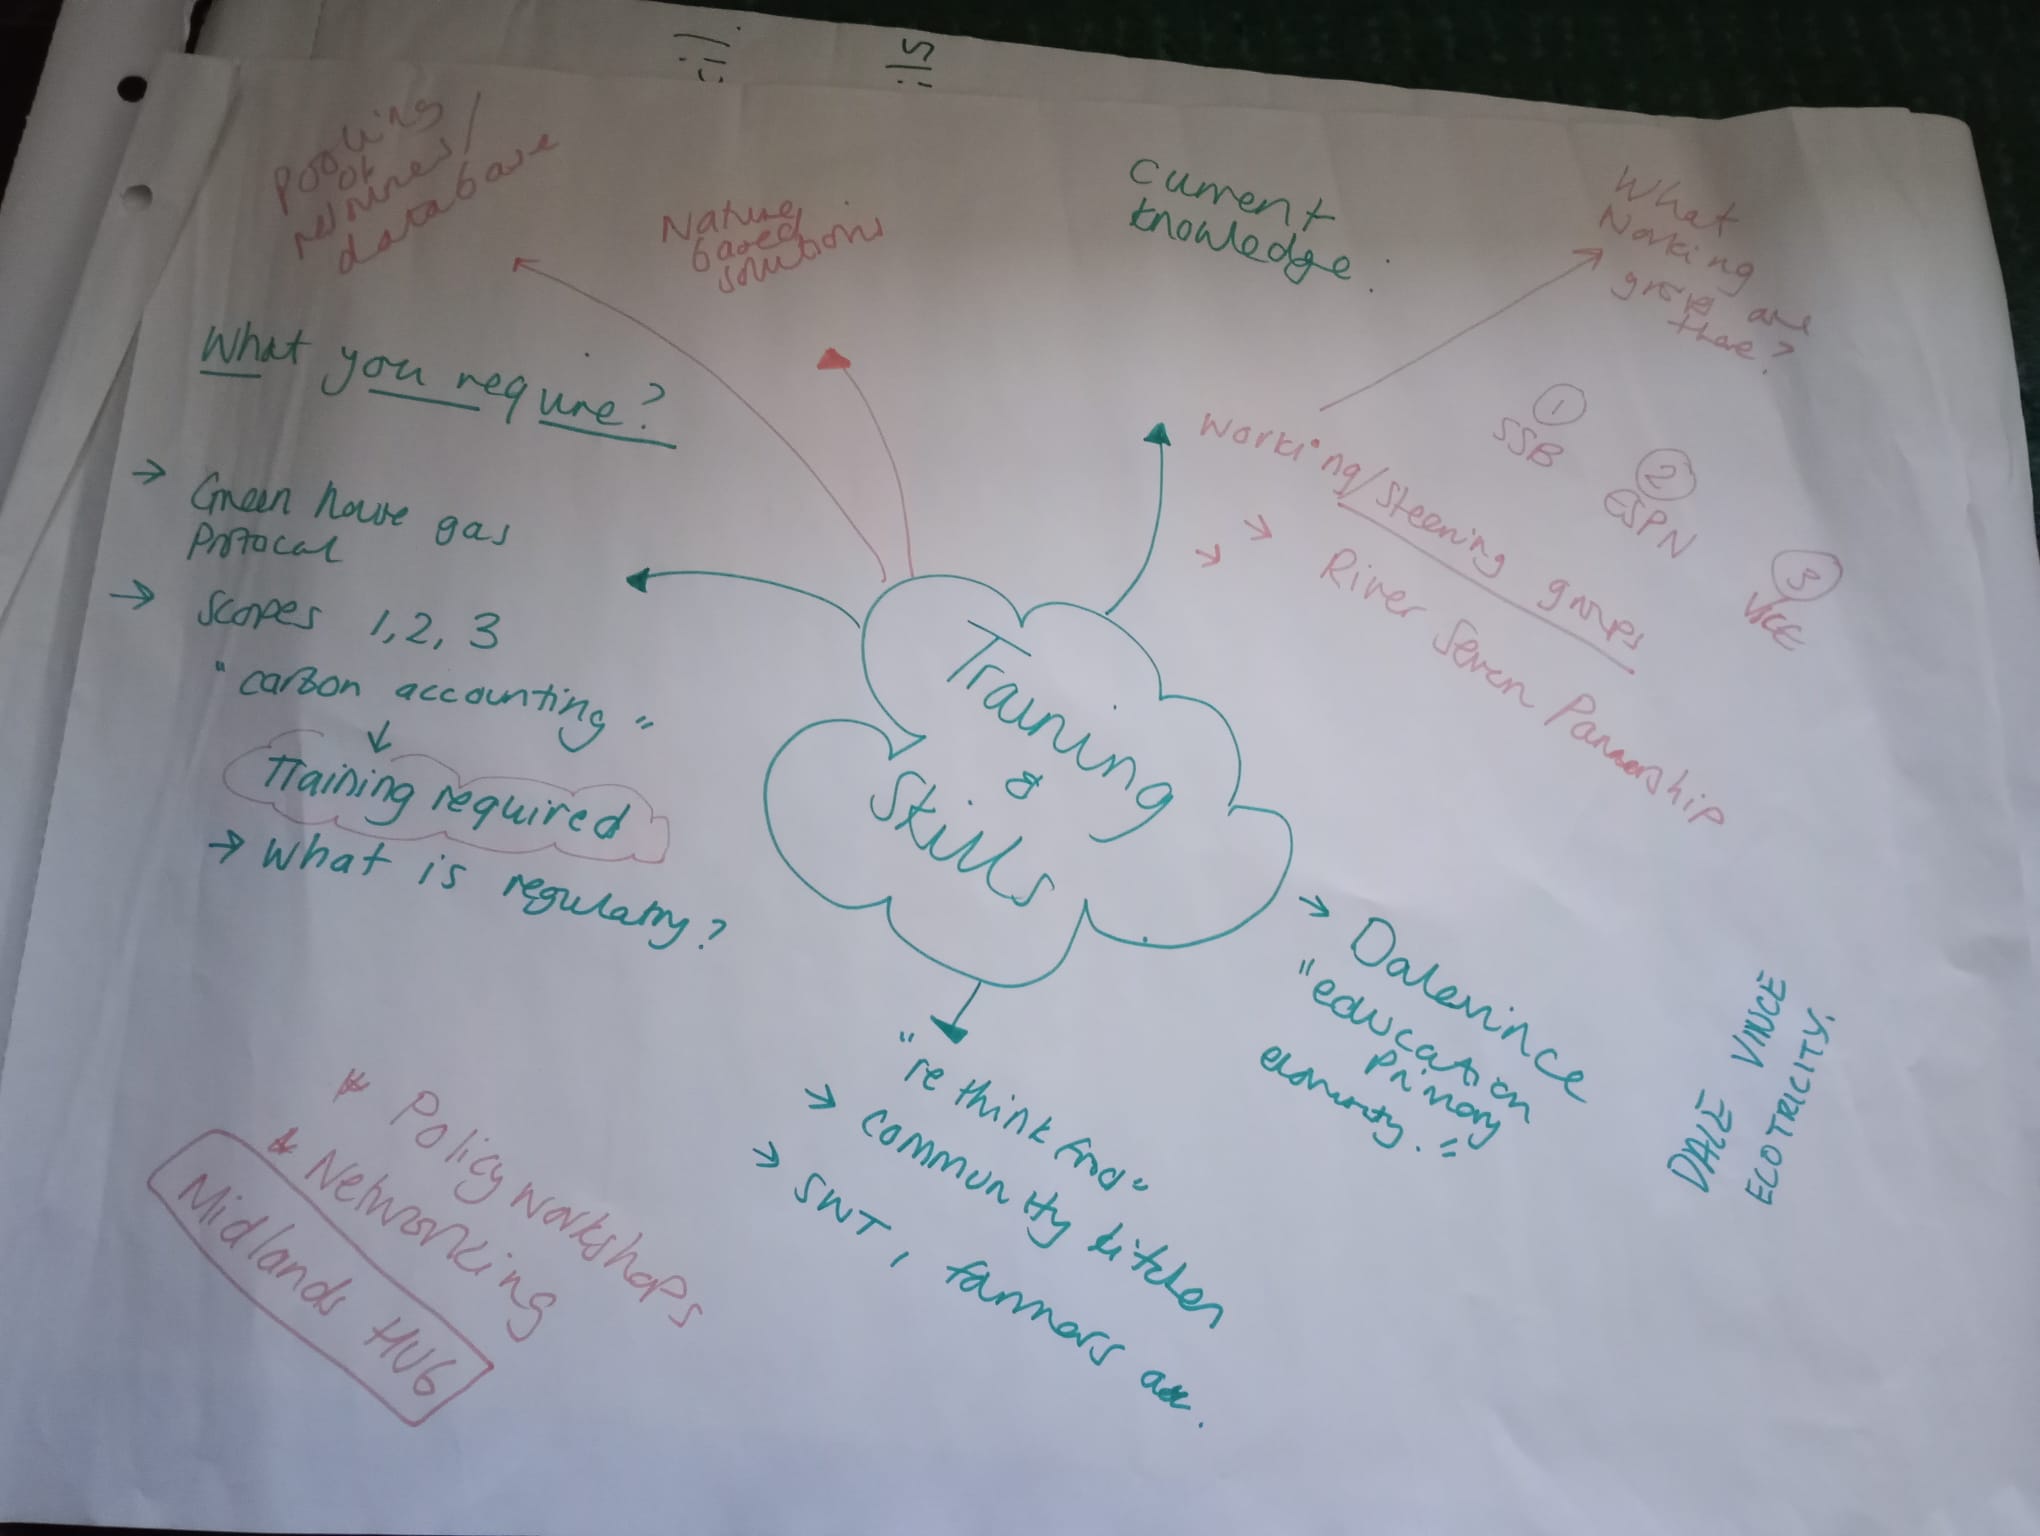 Pooling
of
resources/
database
Nature
based
solutions
Current
knowledge:
What
Working
groups are
there?
What you require?
→ Green house gas
Protocal
→ Scopes 1,2,3
"carbon accounting"
↓
Training required
→ What is regulatory?
Working/steering groups
→
→ River Severn Partnership
① SSB
② ESPN
③
Training
&
Skills
→ Dalevince
"education
Primary
DALE VINCE
ECOTRICITY.
"re think food"
→ community kitchen
→ SWT, farmers
* Policy workshops
* Networking
Midlands HUB